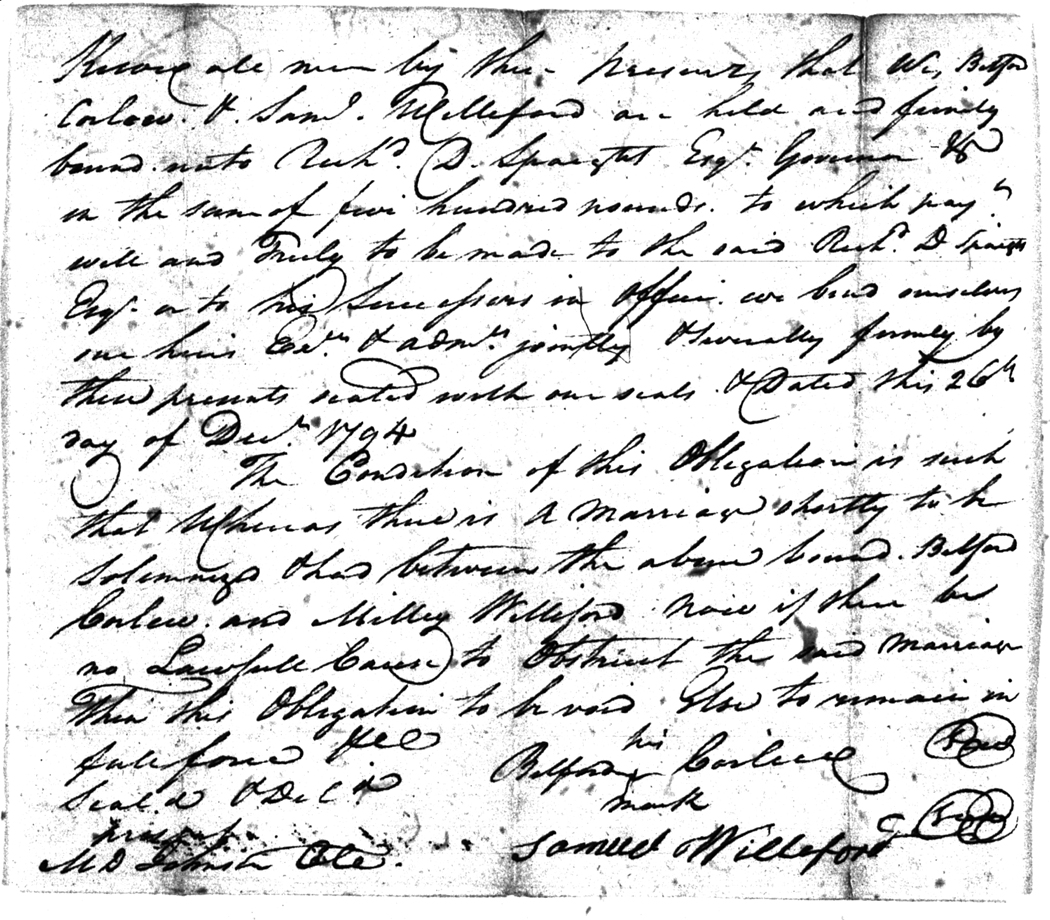 Know all men by these presents that We, Belford
Carlew. & Saml. Willeford are held and firmly
bound unto Richd. D. Spaight Esqr. Governor &c
in the sum of five hundred pounds. to which paymt.
well and Truly to be made to the said Richd. D Spaight
Esqr. or to his Successors in Office. we bind ourselves
our heirs Exrs. & admrs. jointly & severally firmly by
these presents sealed with our seals & Dated this 26th
day of Decr. 1794
The Condition of this Obligation is such
that Whereas there is A Marriage shortly to be
Solemnized & had between the above bound. Belford
Carlew. and Milley Williford Now if there be
no Lawfull Cause to Obstruct the said Marriage
Then this Obligation to be void Else to remain in
full force
his
Belford x Carlew Seal
mark
Seal'd & Del'd in
presens of
M D Johnston
Samuel Willeford Seal